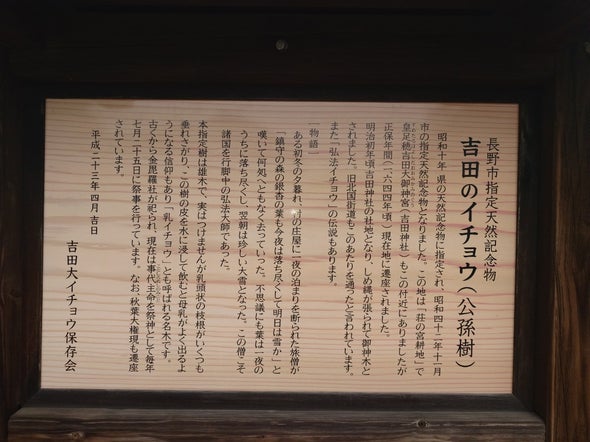 長野市指定天然記念物
吉田のイチョウ(公孫樹)
昭和十年 県の天然記念物に指定され、昭和四十二年十一月
市の指定天然記念物となりました。この地は「荘の宮耕地」で
皇足穂吉田大御神宮(吉田神社)もこの付近にありましたが
正保年間(一六四四年頃)現在地に遷座されました。
明治初年頃吉田神社の社地となり、しめ縄が張られて御神木と
されました。旧北国街道もこのあたりを通ったと言われています。
また「弘法イチョウ」の伝説もあります。
―物語―
ある初冬の夕暮れ、村の庄屋に一夜の泊まりを断られた旅僧が
「鎮守の森の銀杏の葉も今夜は落ち尽くして明日は雪か」と
嘆いて何処へともなく去っていった。不思議にも葉は一夜の
うちに落ち尽くし、翌朝は珍しい大雪となった。この僧こそ
諸国を行脚中の弘法大師であった。
本指定樹は雄木で、実はつけませんが乳頭状の枝根がいくつも
垂れさがり、この樹の皮を水に浸して飲むと母乳がよく出るよ
うになる信仰もあり「乳イチョウ」とも呼ばれる名木です。
古くから金毘羅社が祀られ、現在は事代主命を祭神として毎年
七月二十五日に祭事を行っています。なお、秋葉大権現も遷座
されています。
平成二十三年四月吉日
吉田大イチョウ保存会